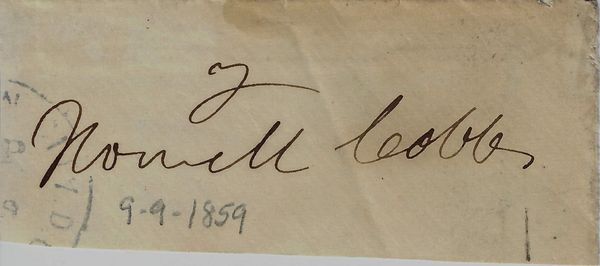 Howell Cobb
9-9-1859